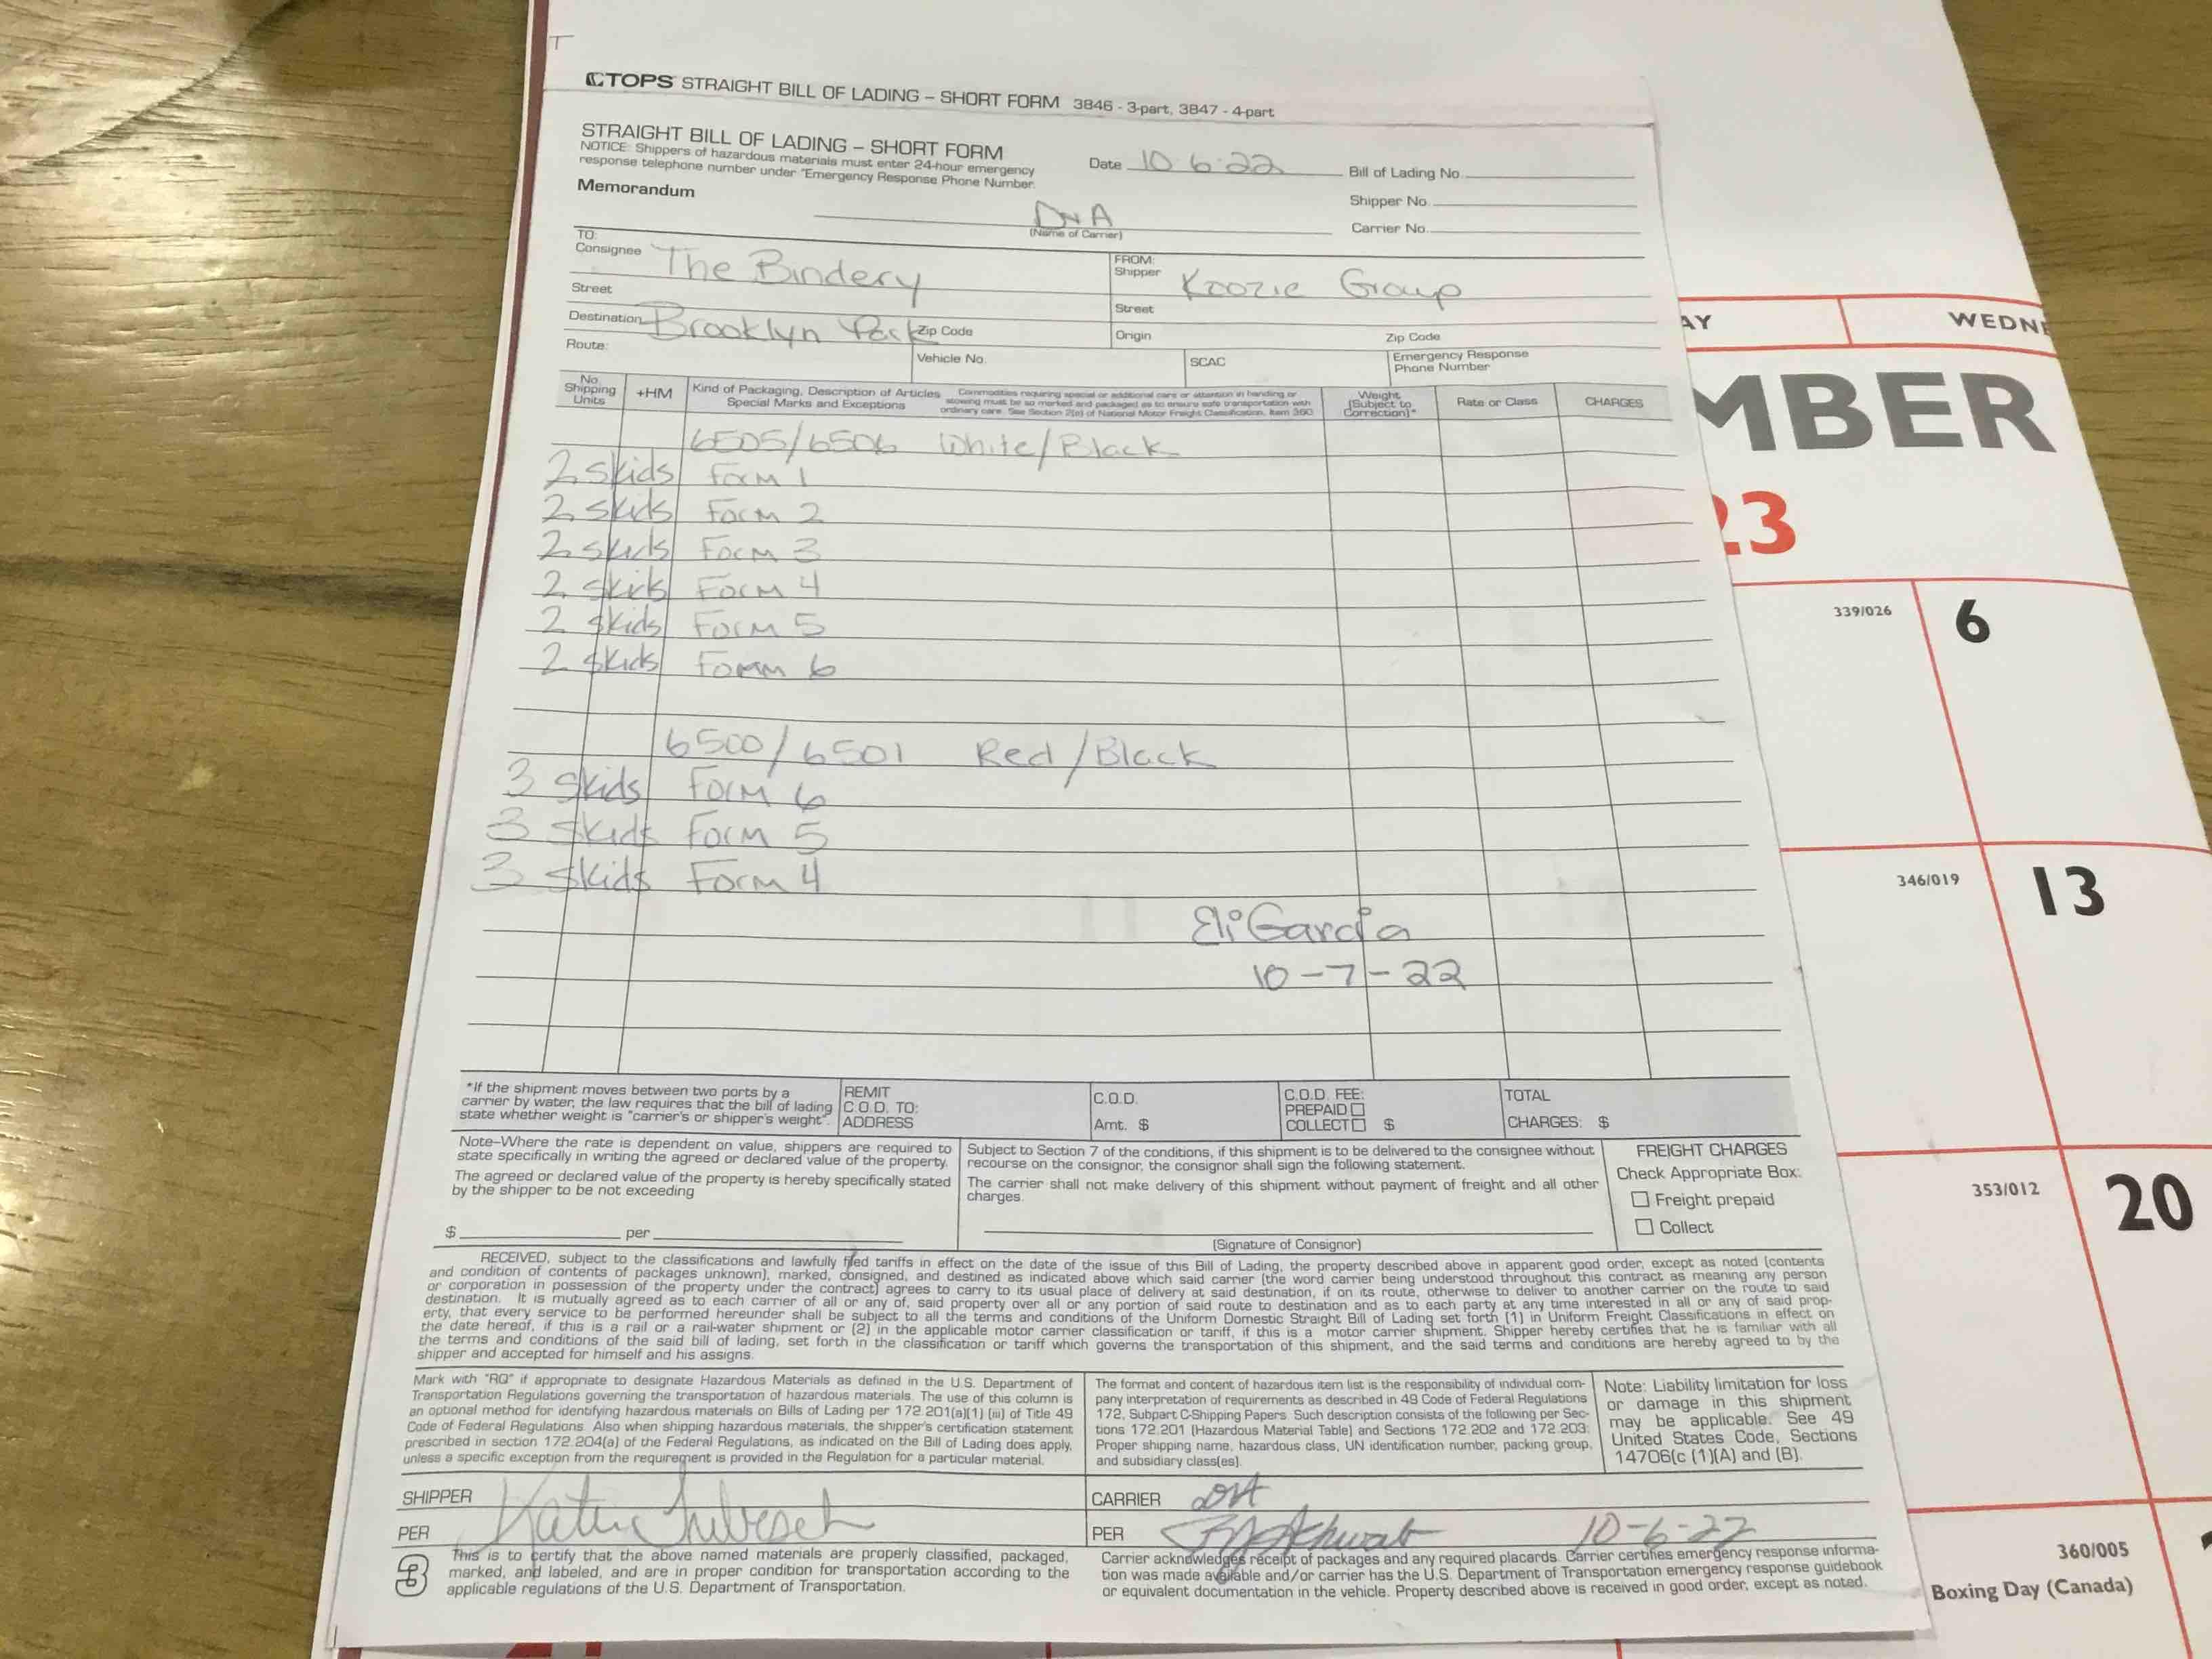 TOPS STRAIGHT BILL OF LADING – SHORT FORM 3846 - 3-part, 3847 - 4-part
STRAIGHT BILL OF LADING – SHORT FORM
NOTICE: Shippers of hazardous materials must enter 24-hour emergency
response telephone number under "Emergency Response Phone Number.
Memorandum
Date 10-6-22
Bill of Lading No.
Shipper No.
Carrier No.
DNA
(Name of Carrier)
TO:
Consignee The Bindery
FROM:
Shipper Koozie Group
Street
Street
Destination Brooklyn Park Zip Code
Origin Zip Code
Route: Vehicle No. SCAC Emergency Response
Phone Number
No. Shipping Units +HM Kind of Packaging, Description of Articles
Special Marks and Exceptions
Commodities requiring special or additional care or attention in handling or
stowing must be so marked and packaged as to ensure safe transportation with
ordinary care. See Section 2(e) of National Motor Freight Classification, Item 360
Weight (Subject to Correction)* Rate or Class CHARGES
6505/6506 White/Black
2 skids Form 1
2 skids Form 2
2 skids Form 3
2 skids Form 4
2 skids Form 5
2 skids Form 6
6500/6501 Red/Black
3 skids Form 6
3 skids Form 5
3 skids Form 4
Eli Garcia
10-7-22
*If the shipment moves between two ports by a
carrier by water, the law requires that the bill of lading
state whether weight is "carrier's or shipper's weight".
REMIT
C.O.D. TO:
ADDRESS
C.O.D.
Amt. $
C.O.D. FEE:
PREPAID
COLLECT $
TOTAL
CHARGES: $
Note–Where the rate is dependent on value, shippers are required to
state specifically in writing the agreed or declared value of the property.
The agreed or declared value of the property is hereby specifically stated
by the shipper to be not exceeding
$ per
Subject to Section 7 of the conditions, if this shipment is to be delivered to the consignee without
recourse on the consignor, the consignor shall sign the following statement.
The carrier shall not make delivery of this shipment without payment of freight and all other
charges.
(Signature of Consignor)
FREIGHT CHARGES
Check Appropriate Box:
Freight prepaid
Collect
RECEIVED, subject to the classifications and lawfully filed tariffs in effect on the date of the issue of this Bill of Lading, the property described above in apparent good order, except as noted (contents
and condition of contents of packages unknown), marked, consigned, and destined as indicated above which said carrier (the word carrier being understood throughout this contract as meaning any person
or corporation in possession of the property under the contract) agrees to carry to its usual place of delivery at said destination, if on its route, otherwise to deliver to another carrier on the route to said
destination. It is mutually agreed as to each carrier of all or any of, said property over all or any portion of said route to destination and as to each party at any time interested in all or any of said prop-
erty, that every service to be performed hereunder shall be subject to all the terms and conditions of the Uniform Domestic Straight Bill of Lading set forth (1) in Uniform Freight Classifications in effect on
the date hereof, if this is a rail or a rail-water shipment or (2) in the applicable motor carrier classification or tariff, if this is a motor carrier shipment. Shipper hereby certifies that he is familiar with all
the terms and conditions of the said bill of lading, set forth in the classification or tariff which governs the transportation of this shipment, and the said terms and conditions are hereby agreed to by the
shipper and accepted for himself and his assigns.
Mark with "RQ" if appropriate to designate Hazardous Materials as defined in the U.S. Department of
Transportation Regulations governing the transportation of hazardous materials. The use of this column is
an optional method for identifying hazardous materials on Bills of Lading per 172.201(a)(1) (iii) of Title 49
Code of Federal Regulations. Also when shipping hazardous materials, the shipper's certification statement
prescribed in section 172.204(a) of the Federal Regulations, as indicated on the Bill of Lading does apply,
unless a specific exception from the requirement is provided in the Regulation for a particular material.
The format and content of hazardous item list is the responsibility of individual com-
pany interpretation of requirements as described in 49 Code of Federal Regulations
172, Subpart C-Shipping Papers. Such description consists of the following per Sec-
tions 172.201 (Hazardous Material Table) and Sections 172.202 and 172.203:
Proper shipping name, hazardous class, UN identification number, packing group,
and subsidiary class(es).
Note: Liability limitation for loss
or damage in this shipment
may be applicable. See 49
United States Code, Sections
14706(c (1)(A) and (B).
SHIPPER
PER
CARRIER DNA
PER 10-6-22
3
This is to certify that the above named materials are properly classified, packaged,
marked, and labeled, and are in proper condition for transportation according to the
applicable regulations of the U.S. Department of Transportation.
Carrier acknowledges receipt of packages and any required placards. Carrier certifies emergency response informa-
tion was made available and/or carrier has the U.S. Department of Transportation emergency response guidebook
or equivalent documentation in the vehicle. Property described above is received in good order, except as noted.
AY WEDNE
MBER
23
339/026 6
346/019 13
353/012 20
360/005
Boxing Day (Canada)